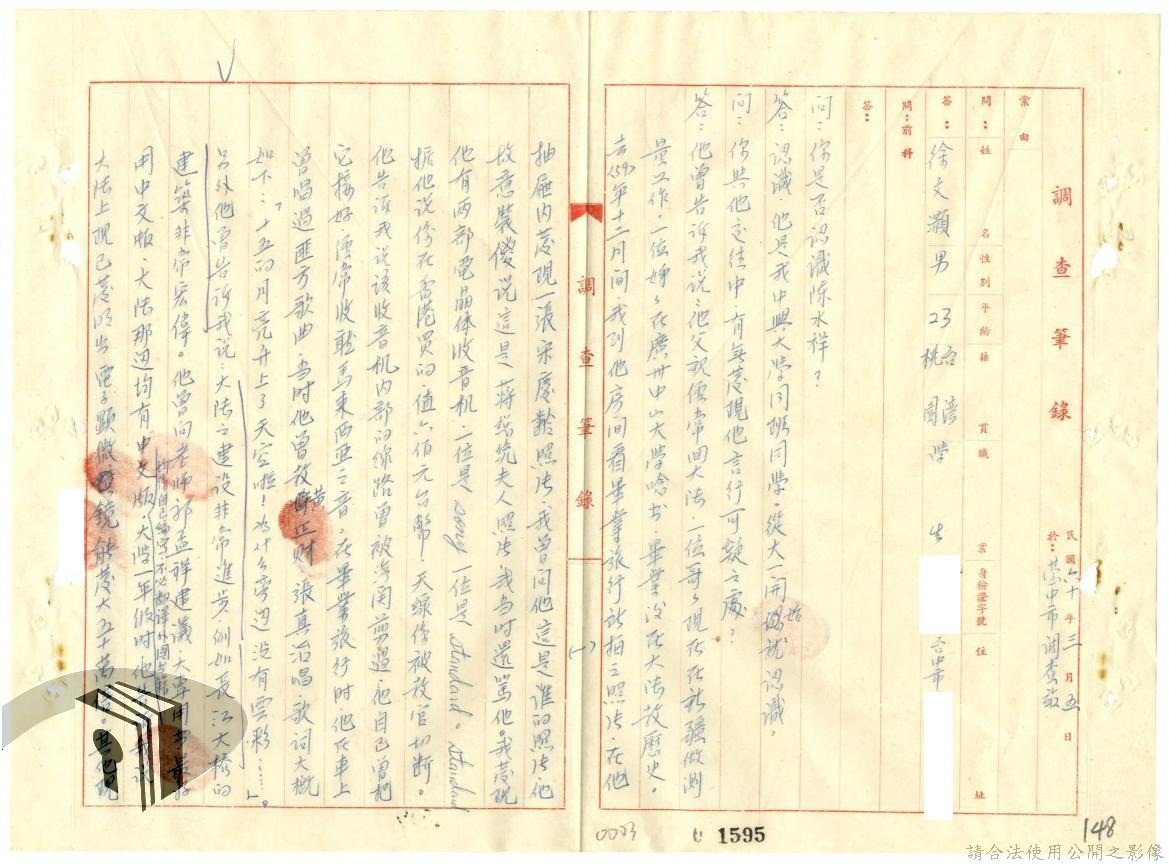 調查筆錄
民國六十年三月五日
於:台中市調查站
案由
問:姓名性別年齡籍貫職業身份證字號住址
答:徐文灝男23台灣桃園學生 台中市
問:前科
答:
問:你是否認識陈水祥?
答:認識,他是我中興大学同班同学,從大一開始就認識。
問:你與他交往中,有無發現他言行可疑之處?
答:他曾告訴我説:他父親係常回大陆,一位哥々現在在新疆做測
量工作,一位姊々在廣州中山大学唸书,畢業後在大陆教歷史。
去(59)年十二月間,我到他房间看畢業旅行所拍之照片,在他
調查筆錄
(一)
抽屜内發現一張宋慶齡照片,我曾问他這是誰的照片,他
故意装傻说這是蔣總统夫人照片,我当时還罵他。我發現
他有两部電晶体收音机,一位是Sony一位是Standard。Standard
據他说係在香港買的,值六佰元台幣,天線係被教官切断。
他告訴我说該收音机内部的線路曾被海関剪過,他自己曾把
它接好,经常收聽馬来西亚之音。在畢業旅行时,他在車上
曾唱過匪方歌曲,当时他曾教黄正财、張真治唱,歌词大概
如下:「十五的月亮升上了天空啦!为什么旁边没有雲彩……」。
另外他曾告訴我说:大陆之建设非常進步,例如長江大橋的
建築非常宏偉。他曾向老师郭孟祥建議,大專用书最好
用中文版,大陆那边均有中文版,大学一年级时他告訴我说
均自己编写,不必翻译外國书籍
大陆上現已發明出電子顯微鏡能發大五十萬倍。其他現
0023
1595
148
請合法使用公開之影像